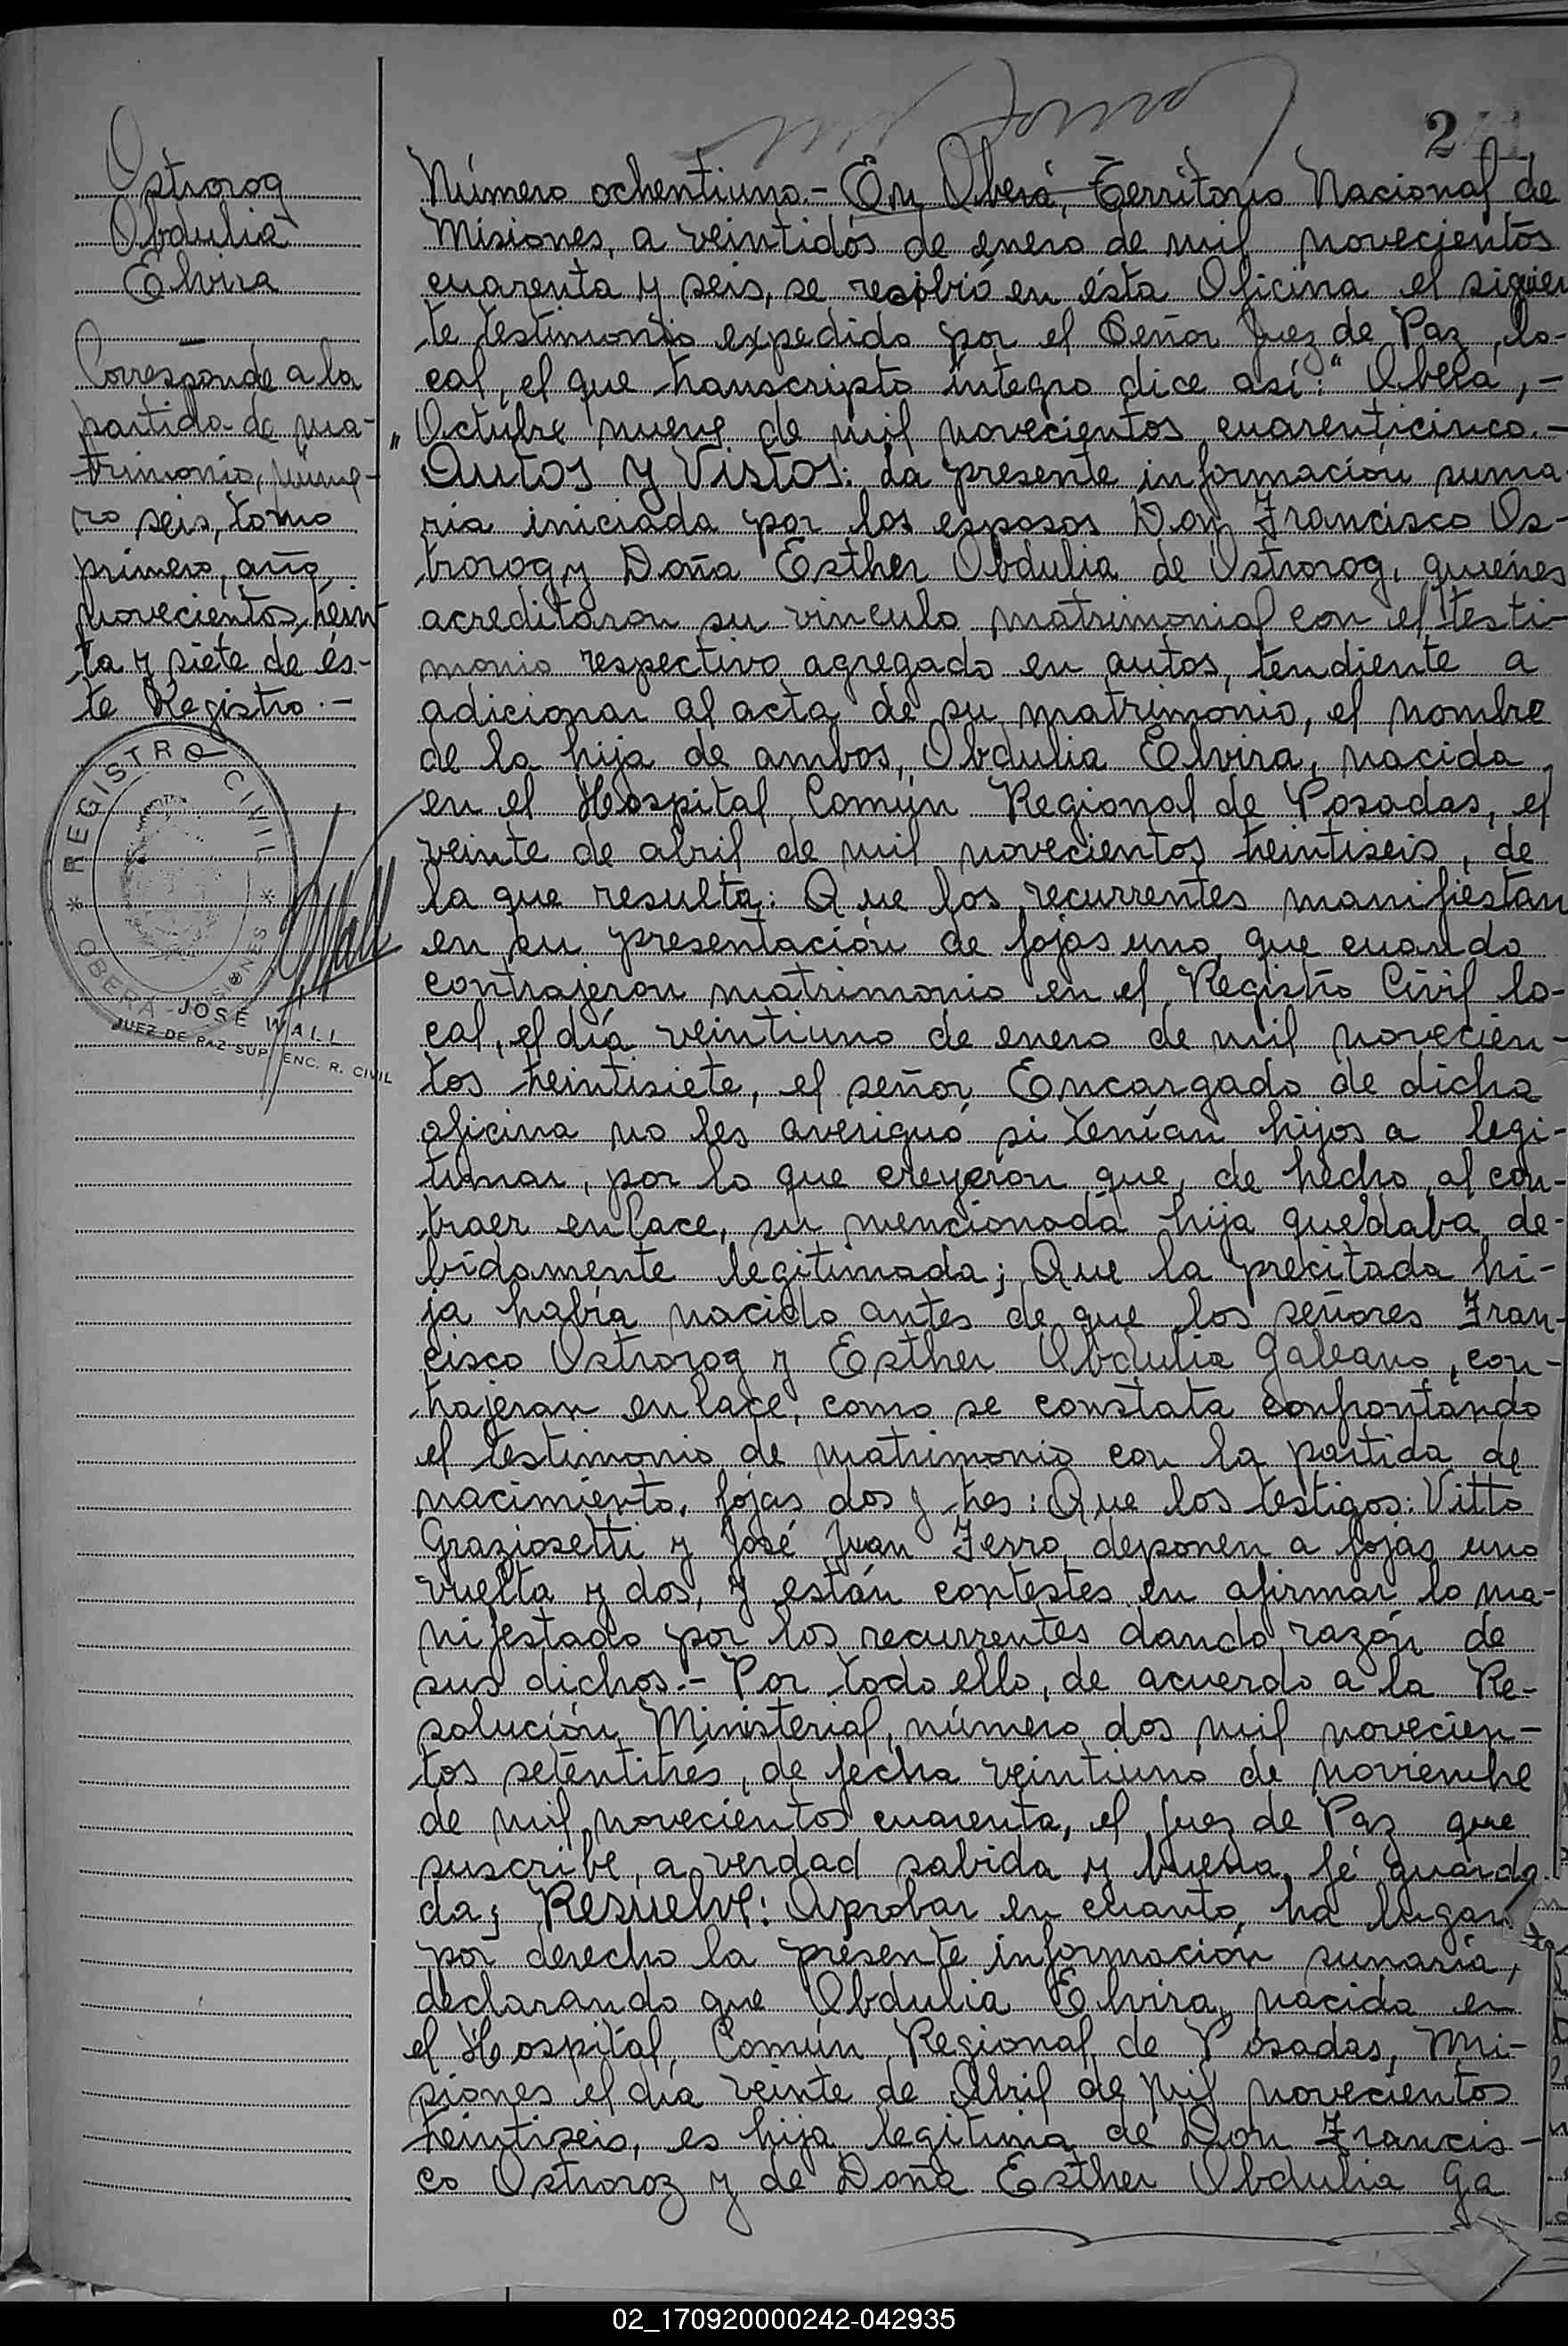 2
Ostrorog
Obdulia
Elvira
Corresponde a la
partida de ma-
trimonio, núme-
ro seis, tomo
primero, año
novecientos trein
ta y siete de és-
te Registro.-
* REGISTRO CIVIL *
OBERÁ - MISIONES
JOSE WALL
JUEZ DE PAZ SUP. ENC. R. CIVIL
Número ochentiuno.- En Oberá, Territorio Nacional de
Misiones, a veintidós de enero de mil novecientos
cuarenta y seis, se recibió en ésta Oficina el siguien
te testimonio expedido por el Señor Juez de Paz lo-
cal, el que transcripto íntegro dice así: "Oberá,-
"Octubre nueve de mil novecientos cuarenticinco.-
Autos y Vistos: La presente información suma-
ria iniciada por los esposos Don Francisco Os-
trorog y Doña Esther Obdulia de Ostrorog, quiénes
acreditaron su vinculo matrimonial con el testi-
monio respectivo agregado en autos, tendiente a
adicionar al acta de su matrimonio, el nombre
de la hija de ambos, Obdulia Elvira, nacida
en el Hospital Común Regional de Posadas, el
veinte de abril de mil novecientos treintiseis, de
la que resulta: Que los recurrentes manifiestan
en su presentación de fojas uno, que cuando
contrajeron matrimonio en el Registro Civil lo-
cal, el día veintiuno de enero de mil novecien-
tos treintisiete, el señor Encargado de dicha
oficina no les averiguó si tenían hijos a legi-
timar, por lo que creyeron que, de hecho, al con-
traer enlace, su mencionada hija quedaba de-
bidamente legitimada; Que la precitada hi-
ja había nacido antes de que los señores Fran-
cisco Ostrorog y Esther Obdulia Galeano, con-
trajeran enlace, como se constata confrontando
el testimonio de matrimonio con la partida de
nacimiento, fojas dos y tres: Que los testigos: Vitto
Graziosetti y José Juan Ferro, deponen a fojas uno
vuelta y dos, y están contestes en afirmar lo ma-
nifestado por los recurrentes dando razón de
sus dichos.- Por todo ello, de acuerdo a la Re-
solución Ministerial, número dos mil novecien-
tos setentitrés, de fecha veintiuno de noviembre
de mil novecientos cuarenta, el Juez de Paz que
suscribe, a verdad sabida y buena fé guarda
da; Resuelve: Aprobar en cuanto ha lugar
por derecho la presente información sumaria,
declarando que Obdulia Elvira, nacida en
el Hospital Común Regional de Posadas, Mi-
siones el día veinte de Abril de mil novecientos
treintiseis, es hija legitima de Don Francis-
co Ostroroz y de Doña Esther Obdulia Ga
02_170920000242-042935